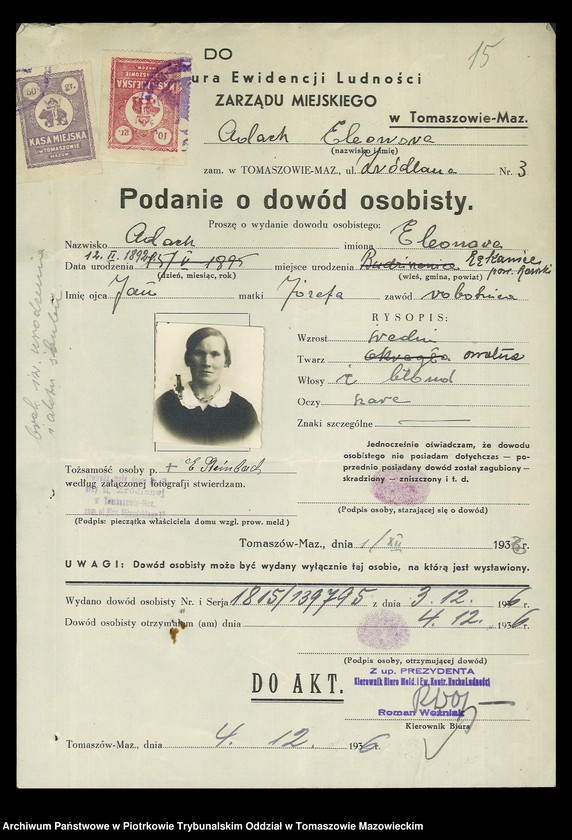 15
DO
ura Ewidencji Ludności
ZARZĄDU MIEJSKIEGO
w Tomaszowie-Maz.
50 gr.
KASA MIEJSKA
w TOMASZOWIE
MAZOW.
KASA MIEJSKA
w TOMASZOWIE
10 gr.
Adach Eleonora
(nazwisko i imię)
zam. w TOMASZOWIE-MAZ., ul. Źródlana Nr. 3
Podanie o dowód osobisty.
Proszę o wydanie dowodu osobistego:
Nazwisko Adach imiona Eleonora
12. II. 1892
Data urodzenia 1895 miejsce urodzenia
(dzień, miesiąc, rok) (wieś, gmina, powiat)
Imię ojca Jan matki Józefa zawód robotnica
brak św. urodzenia
RYSOPIS:
Wzrost średni
Twarz okrągła owalna
Włosy blond
Oczy szare
Znaki szczególne
Jednocześnie oświadczam, że dowodu
osobistego nie posiadam dotychczas — po-
przednio posiadany dowód został zagubiony -
skradziony — zniszczony i t. d.
Tożsamość osoby p. + E Steinbach
według załączonej fotografji stwierdzam.
(Podpis: pieczątka właściciela domu wzgl. prow. meld)
(Podpis osoby, starającej się o dowód)
Tomaszów-Maz., dnia 1/XII 1936 r.
UWAGI: Dowód osobisty może być wydany wyłącznie tej osobie, na którą jest wystawiony.
Wydano dowód osobisty Nr. i Serja 1815/139795 z dnia 3. 12. 1936 r.
Dowód osobisty otrzymałam (am) dnia 4. 12. 1936 r.
(Podpis osoby, otrzymującej dowód)
Z up. PREZYDENTA
Kierownik Biura Meld. i Ew. Kontr. Ruchu Ludności
DO AKT.
Roman Woźniak
Kierownik Biura
Tomaszów-Maz., dnia 4. 12. 1936 r.
Archiwum Państwowe w Piotrkowie Trybunalskim Oddział w Tomaszowie Mazowieckim